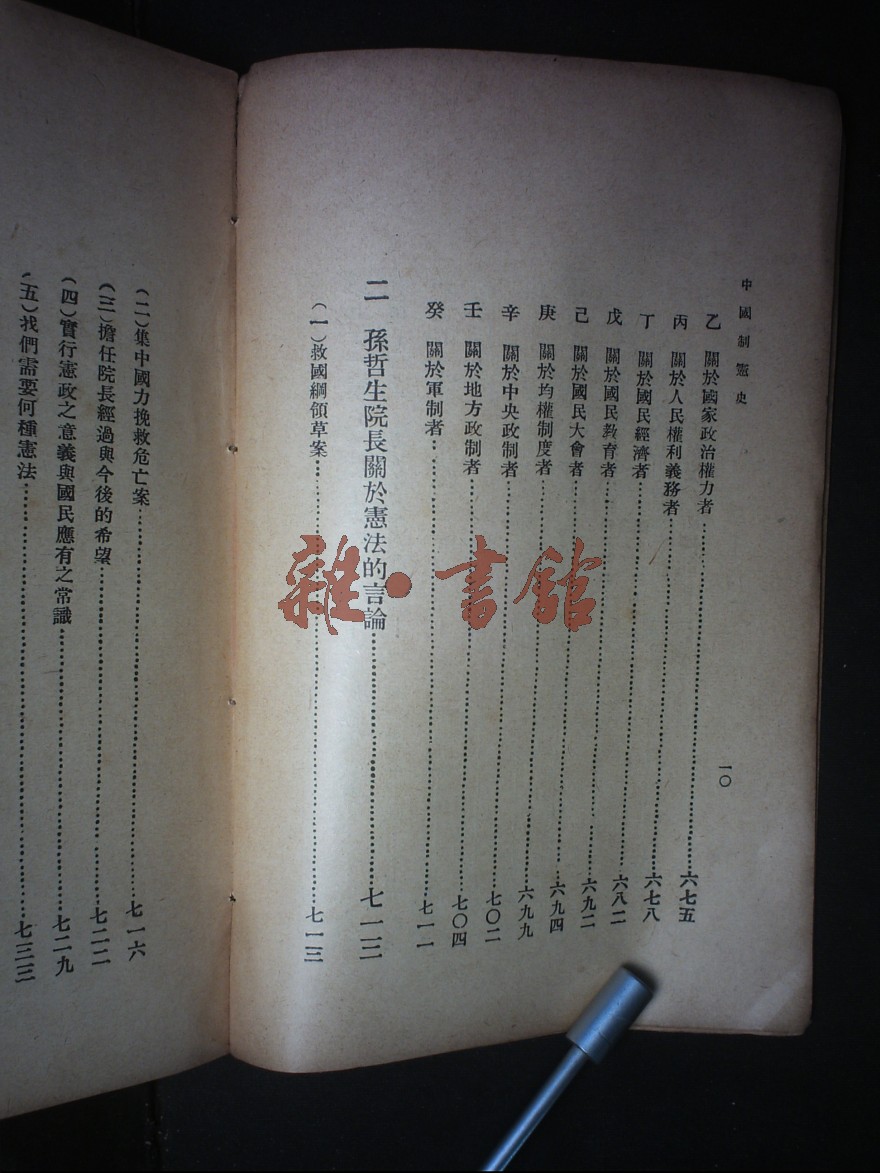 中國制憲史
一〇
乙 關於國家政治權力者……六七五
丙 關於人民權利義務者……六七八
丁 關於國民經濟者……六八二
戊 關於國民敎育者……六九二
己 關於國民大會者……六九四
庚 關於均權制度者……六九九
辛 關於中央政制者……七〇二
壬 關於地方政制者……七〇四
癸 關於軍制者……七一一
二 孫哲生院長關於憲法的言論……七一三
(一)救國綱領草案……七一三
(二)集中國力挽救危亡案……七一六
(三)擔任院長經過與今後的希望……七二二
(四)實行憲政之意義與國民應有之常識……七二九
(五)我們需要何種憲法……七三三
雜·書館